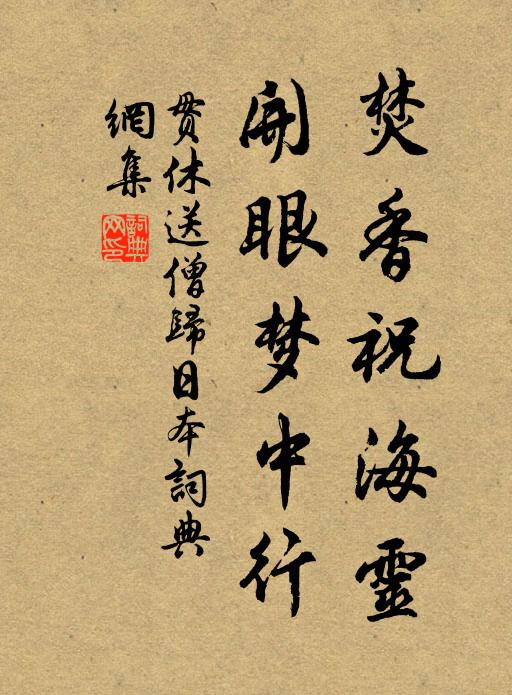 焚香祝海靈
開眼梦中行
貫休送僧歸日本詞典
網集
詞典網印